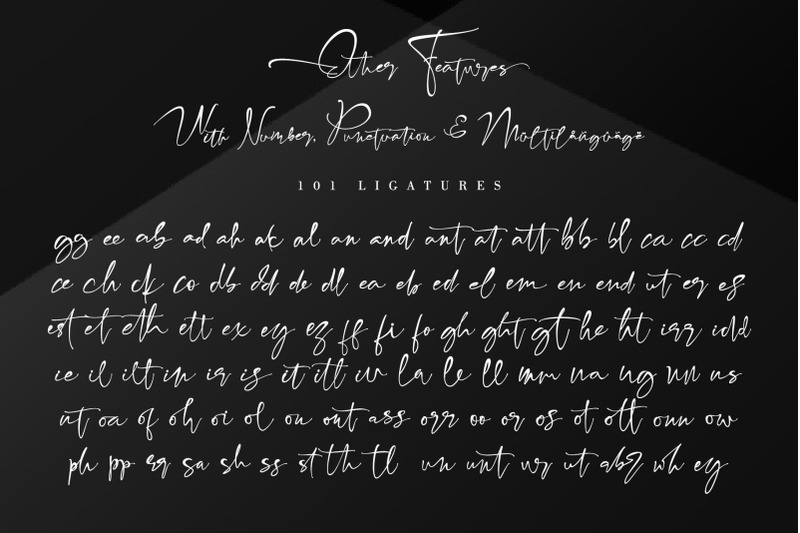 Other Features
With Number, Punctuation & Multilanguage
101 LIGATURES
gg ee ab ad ah ak al an and ant at att bb bl ca cc cd
ce ch ck co db dd de dl ea eb ed el em en end ut er es
est et eth ett ex ey ez ff fi fo gh ght gt he ht irr idd
ie il ilt in ir is it itt iv la le ll mm na ng nn ns
nt oa of oh oi ol on ont ass orr oo or os ot ott onn ow
ph pp rq sa sh ss st th tl un unt ur ut abz wh ey